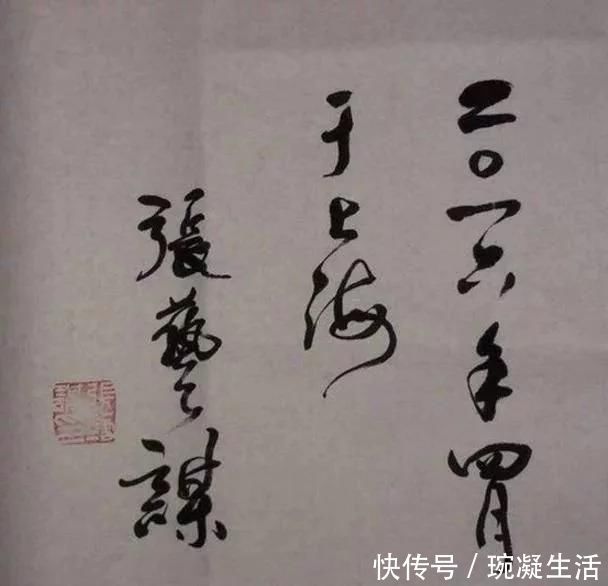 二〇一六年四月
于上海
張藝謀
快传号 / 琬凝生活